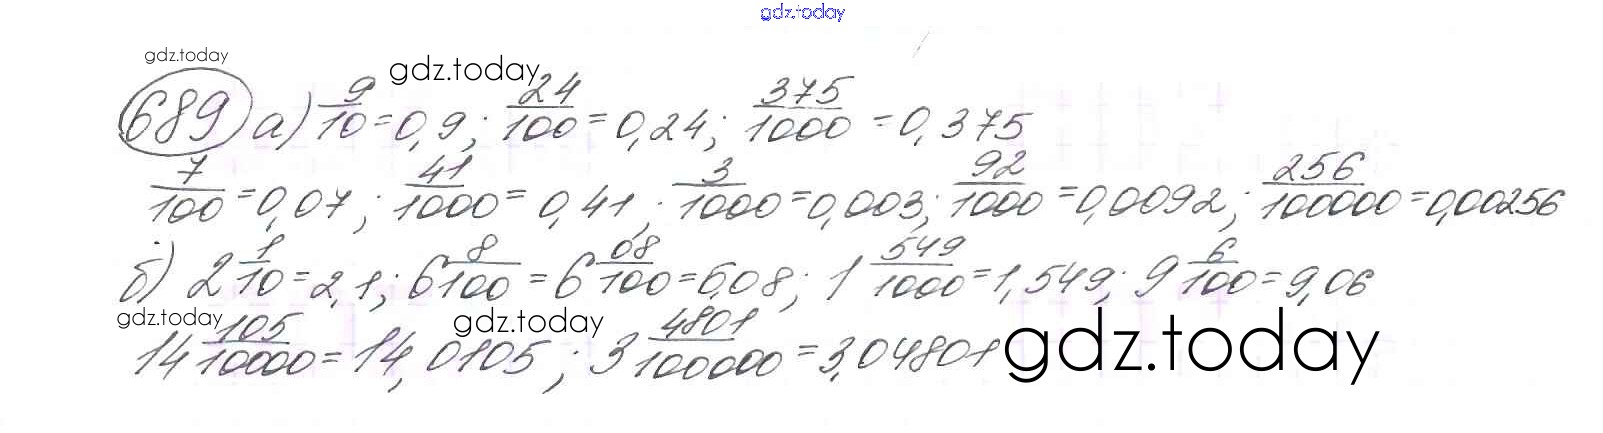 gdz.today
gdz.today
gdz.today
689 а) 9/10 = 0,9; 24/100 = 0,24; 375/1000 = 0,375
7/100 = 0,07; 41/1000 = 0,41; 3/1000 = 0,003; 92/1000 = 0,0092; 256/100000 = 0,00256
б) 2 1/10 = 2,1; 6 8/100 = 6 08/100 = 6,08; 1 549/1000 = 1,549; 9 6/100 = 9,06
gdz.today
gdz.today
gdz.today
14 105/10000 = 14,0105; 3 4801/100000 = 3,04801